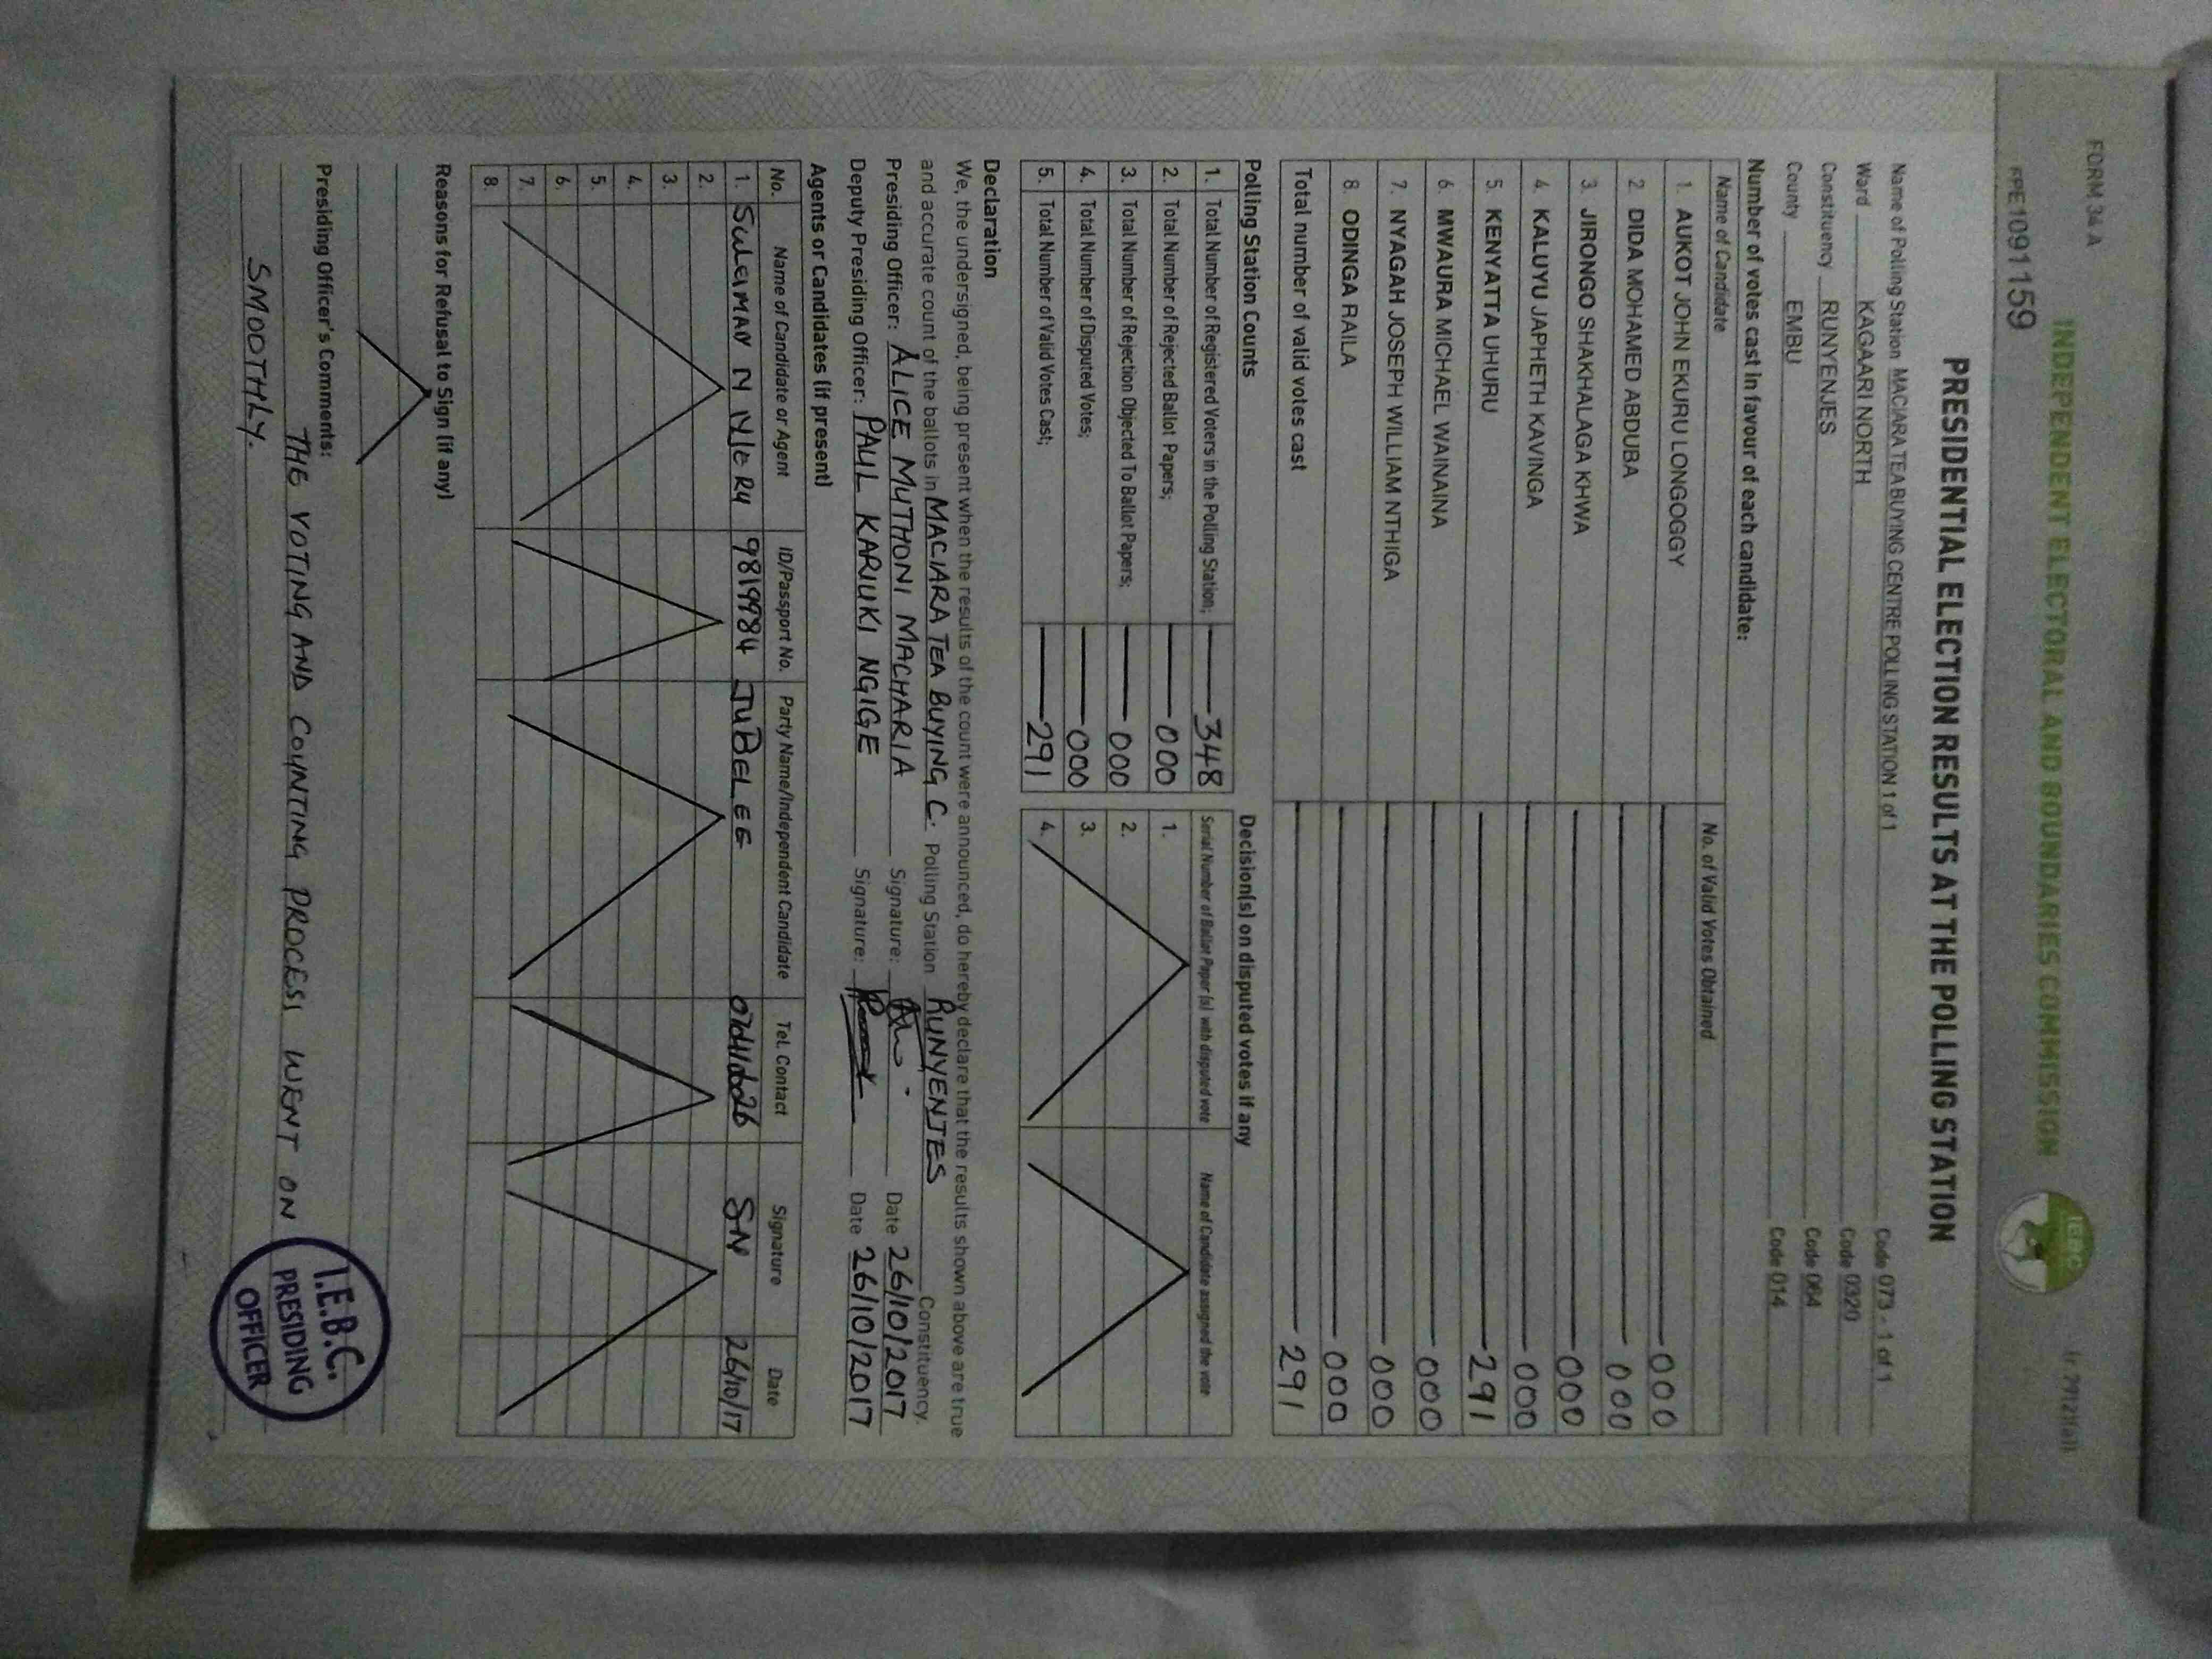 FORM 34 A
INDEPENDENT ELECTORAL AND BOUNDARIES COMMISSION
IEBC
PRESIDENTIAL ELECTION RESULTS AT THE POLLING STATION
Name of Polling Station MACIARA TEA BUYING CENTRE POLLING STATION 1 of 1 Code 073 - 1 of 1
Ward KAGAARI NORTH Code 0320
Constituency RUNYENJES Code 064
County EMBU Code 014
Number of votes cast in favour of each candidate:
Name of Candidate No. of Valid Votes Obtained
1. AUKOT JOHN EKURU LONGOGGY 000
2 DIDA MOHAMED ABDUBA 000
3. JIRONGO SHAKHALAGA KHWA 000
4. KALUYU JAPHETH KAVINGA 000
5. KENYATTA UHURU 291
6. MWAURA MICHAEL WAINAINA 000
7. NYAGAH JOSEPH WILLIAM NTHIGA 000
8. ODINGA RAILA 000
Total number of valid votes cast 291
Polling Station Counts
1. Total Number of Registered Voters in the Polling Station; 348
2. Total Number of Rejected Ballot Papers; 000
3. Total Number of Rejection Objected To Ballot Papers; 000
4. Total Number of Disputed Votes; 000
5. Total Number of Valid Votes Cast; 291
Decision(s) on disputed votes if any
Serial Number of Ballot Paper (s) with disputed vote Name of Candidate assigned the vote
1.
2.
3.
4.
Declaration
We, the undersigned, being present when the results of the count were announced, do hereby declare that the results shown above are true
and accurate count of the ballots in MACIARA TEA BUYING C. Polling Station RUNYENJES Constituency.
Presiding Officer: ALICE MUTHONI MACHARIA Signature: Date 26/10/2017
Deputy Presiding Officer: PAUL KARIUKI NGIGE Signature: Date 26/10/2017
Agents or Candidates (if present)
No. Name of Candidate or Agent ID/Passport No. Party Name/Independent Candidate Tel. Contact Signature Date
1. SULEIMAN N 9819984 JUBELEE SN 26/10/17
2.
3.
4.
5.
6.
7.
8.
Reasons for Refusal to Sign (if any)
Presiding Officer's Comments:
THE VOTING AND COUNTING PROCESS WENT ON
SMOOTHLY.
I.E.B.C.
PRESIDING
OFFICER